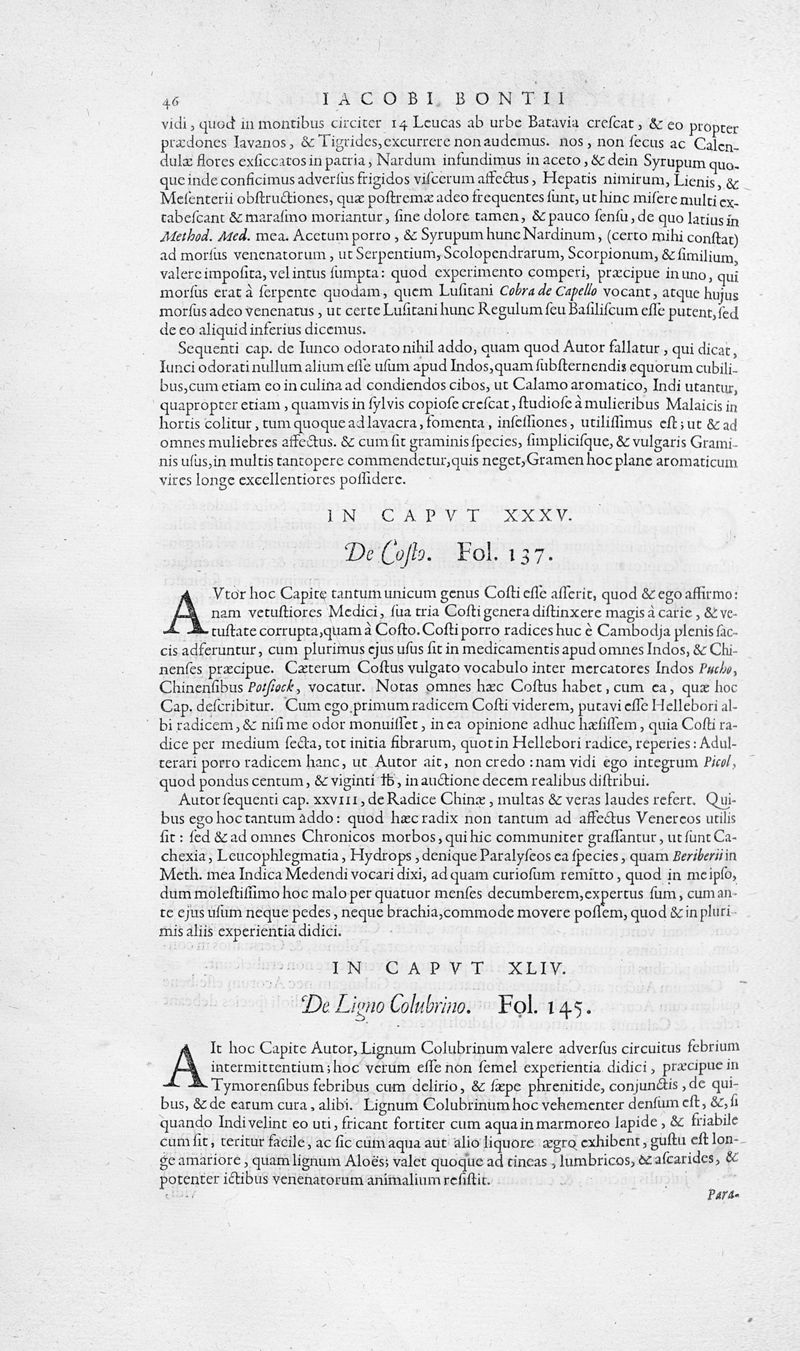 46 IACOBI BONTII
vidi, quod in montibus circiter 14 Leucas ab urbe Batavia creſcat, & eo propter
prædones Iavanos, & Tigrides, excurrere non audemus. nos, non ſecus ac Calen-
dulæ flores exſiccatos in patria, Nardum infundimus in aceto, & dein Syrupum quo-
que inde conficimus adverſus frigidos viſcerum affectus, Hepatis nimirum, Lienis, &
Meſenterii obſtructiones, quæ poſtremæ adeo frequentes ſunt, ut hinc miſere multi ex-
tabeſcant & maraſmo moriantur, ſine dolore tamen, & pauco ſenſu, de quo latius in
Method. Med. mea. Acetum porro, & Syrupum hunc Nardinum, (certo mihi conſtat)
ad morſus venenatorum, ut Serpentium, Scolopendrarum, Scorpionum, & ſimilium,
valere impoſita, vel intus ſumpta: quod experimento comperi, præcipue in uno, qui
morſus erat à ſerpente quodam, quem Luſitani Cobra de Capello vocant, atque hujus
morſus adeo venenatus, ut certe Luſitani hunc Regulum ſeu Baſiliſcum eſſe putent, ſed
de eo aliquid inferius dicemus.
Sequenti cap. de Iunco odorato nihil addo, quam quod Autor fallatur, qui dicat,
Iunci odorati nullum alium eſſe uſum apud Indos, quam ſubſternendis equorum cubili-
bus, cum etiam eo in culina ad condiendos cibos, ut Calamo aromatico, Indi utantur,
quapropter etiam, quamvis in ſylvis copioſe creſcat, ſtudioſe à mulieribus Malaicis in
hortis colitur, tum quoque ad lavacra, fomenta, inſeſſiones, utiliſſimus eſt; ut & ad
omnes muliebres affectus. & cum ſit graminis ſpecies, ſimpliciſque, & vulgaris Grami-
nis uſus, in multis tantopere commendetur, quis neget, Gramen hoc plane aromaticum
vires longe excellentiores poſſidere.
IN CAPVT XXXV.
De Coſto. Fol. 137.
AVtor hoc Capite tantum unicum genus Coſti eſſe aſſerit, quod & ego affirmo:
nam vetuſtiores Medici, ſua tria Coſti genera diſtinxere magis à carie, & ve-
tuſtate corrupta, quam à Coſto. Coſti porro radices huc è Cambodja plenis ſac-
cis adferuntur, cum plurimus ejus uſus ſit in medicamentis apud omnes Indos, & Chi-
nenſes præcipue. Cæterum Coſtus vulgato vocabulo inter mercatores Indos Pucho,
Chinenſibus Potſiock, vocatur. Notas omnes hæc Coſtus habet, cum ea, quæ hoc
Cap. deſcribitur. Cum ego primum radicem Coſti viderem, putavi eſſe Hellebori al-
bi radicem, & niſi me odor monuiſſet, in ea opinione adhuc hæſiſſem, quia Coſti ra-
dice per medium ſecta, tot initia fibrarum, quot in Hellebori radice, reperies: Adul-
terari porro radicem hanc, ut Autor ait, non credo: nam vidi ego integrum Picol,
quod pondus centum, & viginti ℔, in auctione decem realibus diſtribui.
Autor ſequenti cap. XXVIII, de Radice Chinæ, multas & veras laudes refert. Qui-
bus ego hoc tantum addo: quod hæc radix non tantum ad affectus Venereos utilis
ſit: ſed & ad omnes Chronicos morbos, qui hic communiter graſſantur, ut ſunt Ca-
chexia, Leucophlegmatia, Hydrops, denique Paralyſeos ea ſpecies, quam Beriberii in
Meth. mea Indica Medendi vocari dixi, ad quam curioſum remitto, quod in me ipſo,
dum moleſtiſſimo hoc malo per quatuor menſes decumberem, expertus ſum, cum an-
te ejus uſum neque pedes, neque brachia, commode movere poſſem, quod & in pluri-
mis aliis experientia didici.
IN CAPVT XLIV.
De Ligno Colubrino. Fol. 145.
AIt hoc Capite Autor, Lignum Colubrinum valere adverſus circuitus febrium
intermittentium; hoc verum eſſe non ſemel experientia didici, præcipue in
Tymorenſibus febribus cum delirio, & ſæpe phrenitide, conjunctis, de qui-
bus, & de earum cura, alibi. Lignum Colubrinum hoc vehementer denſum eſt, &, ſi
quando Indi velint eo uti, fricant fortiter cum aqua in marmoreo lapide, & friabile
cum ſit, teritur facile, ac ſic cum aqua aut alio liquore ægro exhibent, guſtu eſt lon-
ge amariore, quam lignum Aloës; valet quoque ad tineas, lumbricos, & aſcarides, &
potenter ictibus venenatorum animalium reſiſtit.
Para-